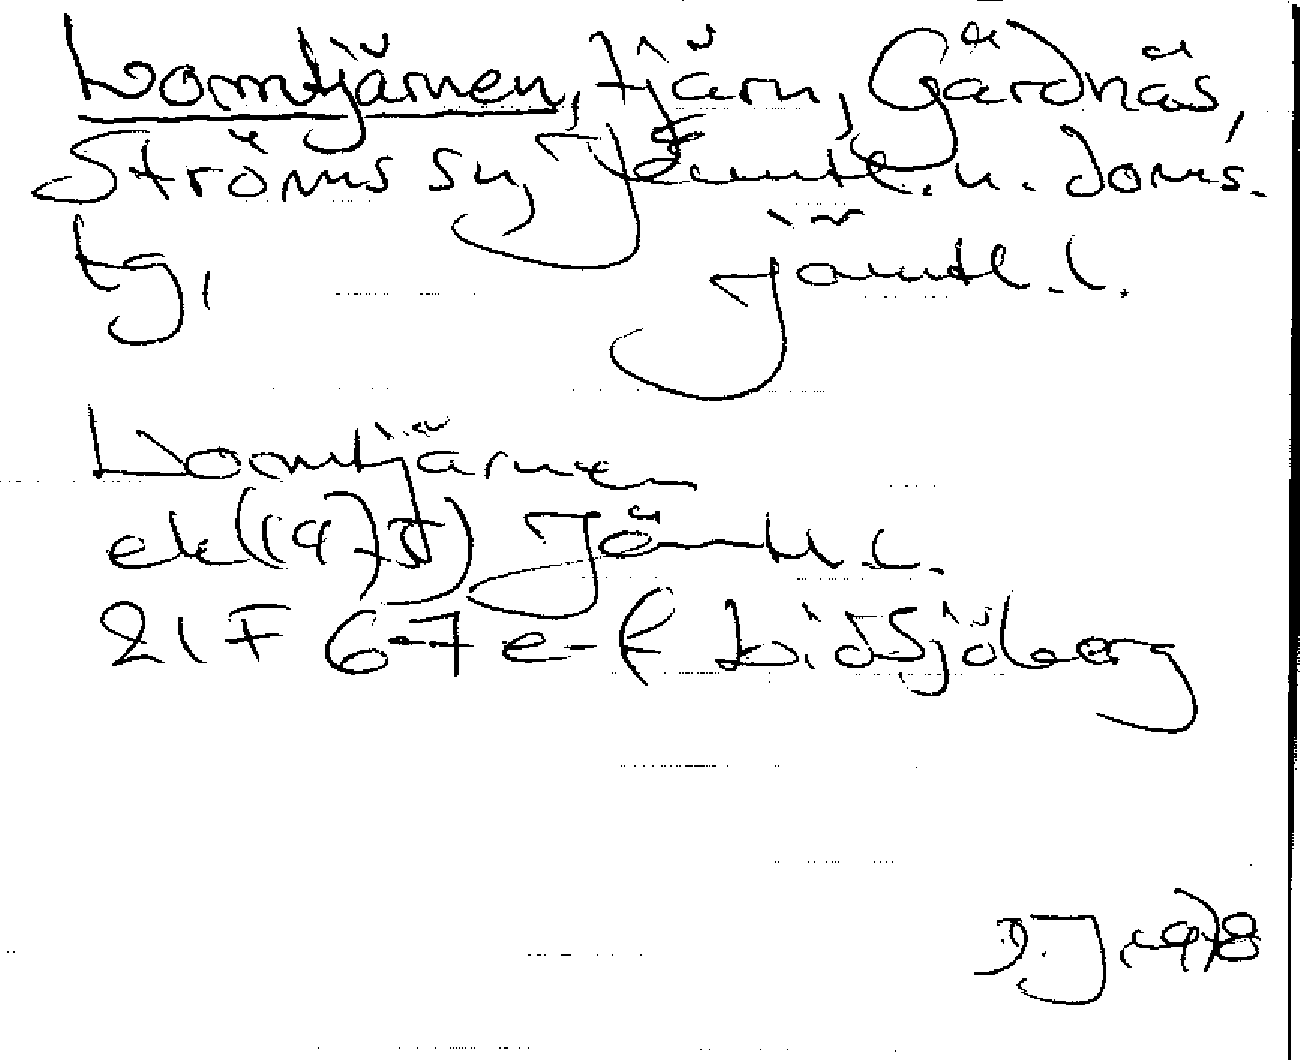 Lomtjärnen, tjärn, Gärdnäs,
Ströms sn, Jämtl. n. doms.
tg, Jämtl. l.
Lomtjärnen
ek (1975) Jämtl. l.
21F 6-7 e-f Lidsjöberg
D. J 1978